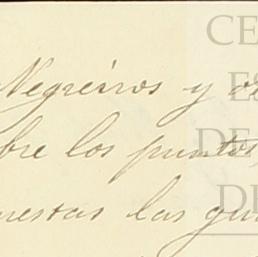 Negreiros y o
bre los puntos,
uestas las gu
CE
ES
DE
D